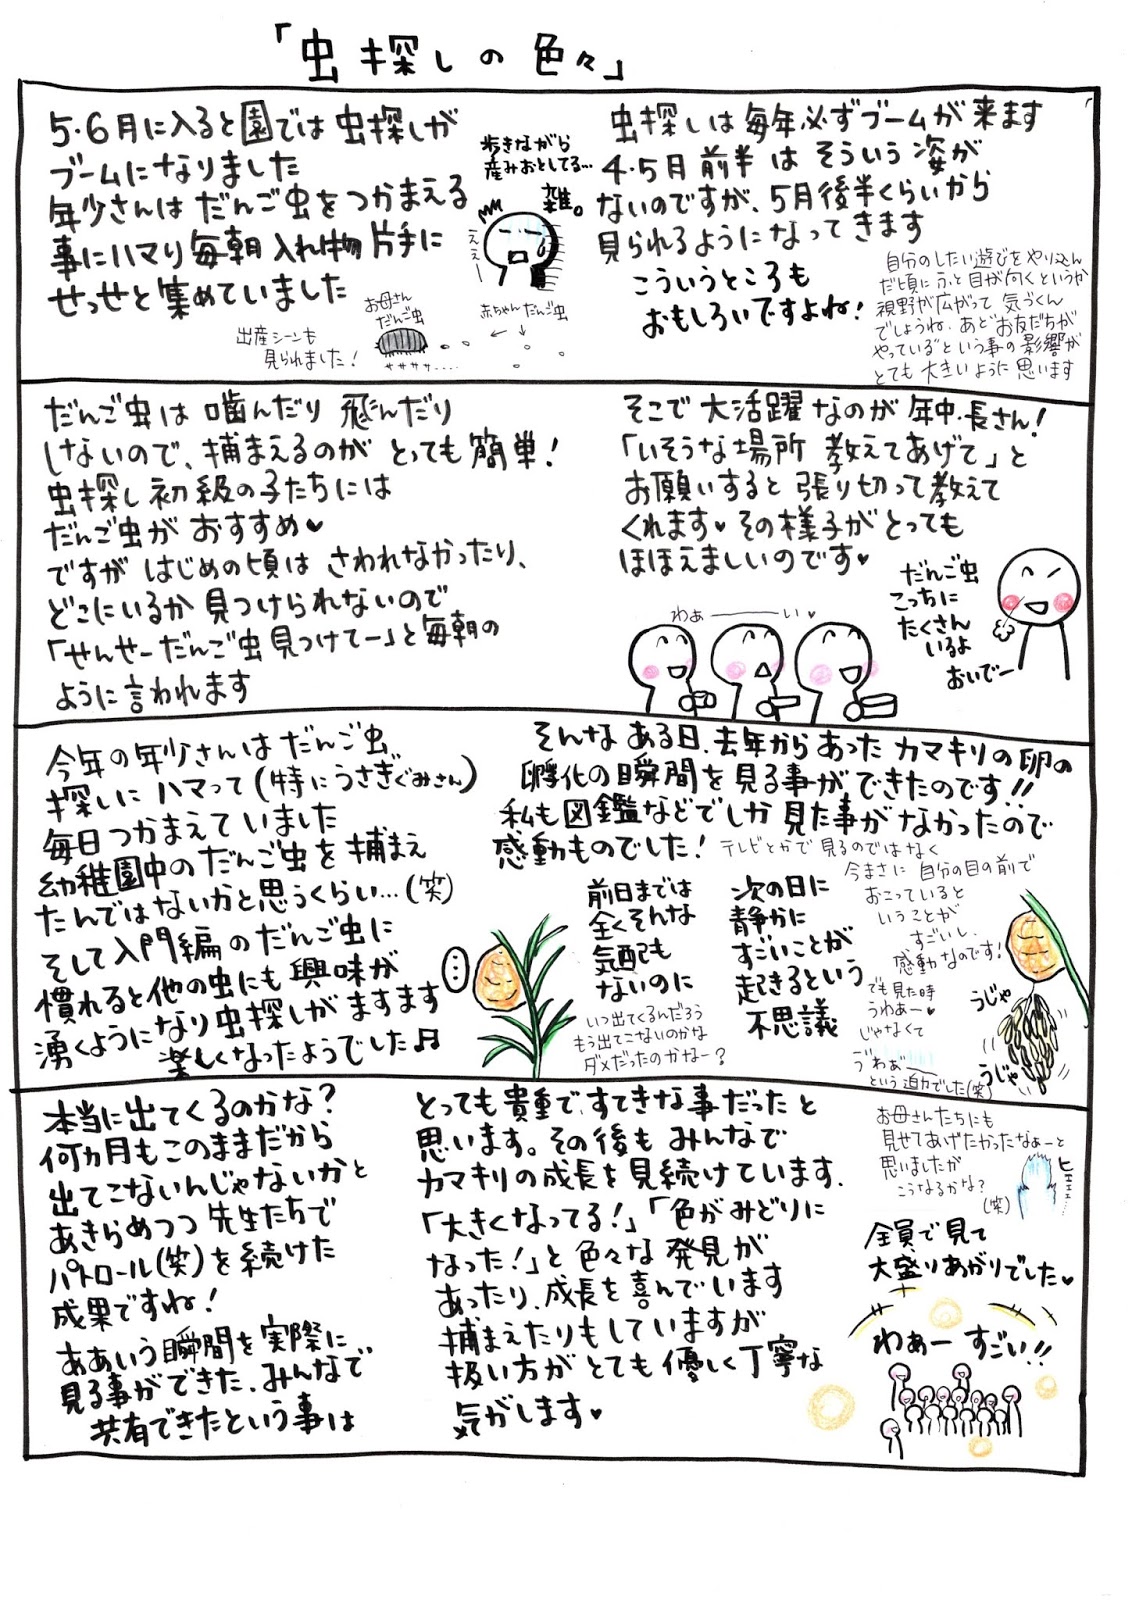 「虫探しの色々」
5・6月に入ると園では虫探しが
ブームになりました
年少さんはだんご虫をつかまえる
事にハマり毎朝入れ物片手に
せっせと集めていました
出産シーンも
見られました!
お母さん
だんご虫
ササササ....
歩きながら
産みおとしてる…
雑。
ええー
赤ちゃんだんご虫
虫探しは毎年必ずブームが来ます
4・5月前半はそういう姿が
ないのですが、5月後半くらいから
見られるようになってきます
こういうところも
おもしろいですよね!
自分のしたい遊びをやり込ん
だ頃にふと目が向くというか
視野が広がって気づくん
でしょうね。あとお友だちが
やっているという事の影響が
とても大きいように思います
だんご虫は噛んだり飛んだり
しないので、捕まえるのがとっても簡単!
虫探し初級の子たちには
だんご虫がおすすめ♥
ですがはじめの頃はさわれなかったり、
どこにいるか見つけられないので
「せんせーだんご虫見つけてー」と毎朝の
ように言われます
そこで大活躍なのが年中・長さん!
「いそうな場所教えてあげて」と
お願いすると張り切って教えて
くれます♥その様子がとっても
ほほえましいのです♥
わぁーーーい♥
だんご虫
こっちに
たくさん
いるよ
おいでー
今年の年少さんはだんご虫
探しにハマって(特にうさぎぐみさん)
毎日つかまえていました
幼稚園中のだんご虫を捕まえ
たんではないかと思うくらい…(笑)
そして入門編のだんご虫に
慣れると他の虫にも興味が
湧くようになり虫探しがますます
楽しくなったようでした♬
そんなある日、去年からあったカマキリの卵の
孵化の瞬間を見る事ができたのです!!
私も図鑑などでしか見た事がなかったので
感動ものでした!
テレビとかで見るのではなく
今まさに自分の目の前で
おこっていると
いうことが
すごいし、
感動なのです!
でも見た時
うわあー♥
じゃなくて
うわぁ゛ーー
という迫力でした(笑)
…
前日までは
全くそんな
気配も
ないのに
いつ出てくるんだろう
もう出てこないのかな
ダメだったのかなー?
次の日に
静かに
すごいことが
起きるという
不思議
うじゃ
うじゃ
本当に出てくるのかな?
何ヵ月もこのままだから
出てこないんじゃないかと
あきらめつつ先生たちで
パトロール(笑)を続けた
成果ですね!
ああいう瞬間を実際に
見る事ができた、みんなで
共有できたという事は
とっても貴重で、すてきな事だったと
思います。その後もみんなで
カマキリの成長を見続けています。
「大きくなってる!」「色がみどりに
なった!」と色々な発見が
あったり、成長を喜んでいます
捕まえたりもしていますが
扱い方がとても優しく丁寧な
気がします♥
お母さんたちにも
見せてあげたかったなぁーと
思いましたが
こうなるかな?
(笑)
ヒェェェ
全員で見て
大盛りあがりでした♥
わぁー すごい!!